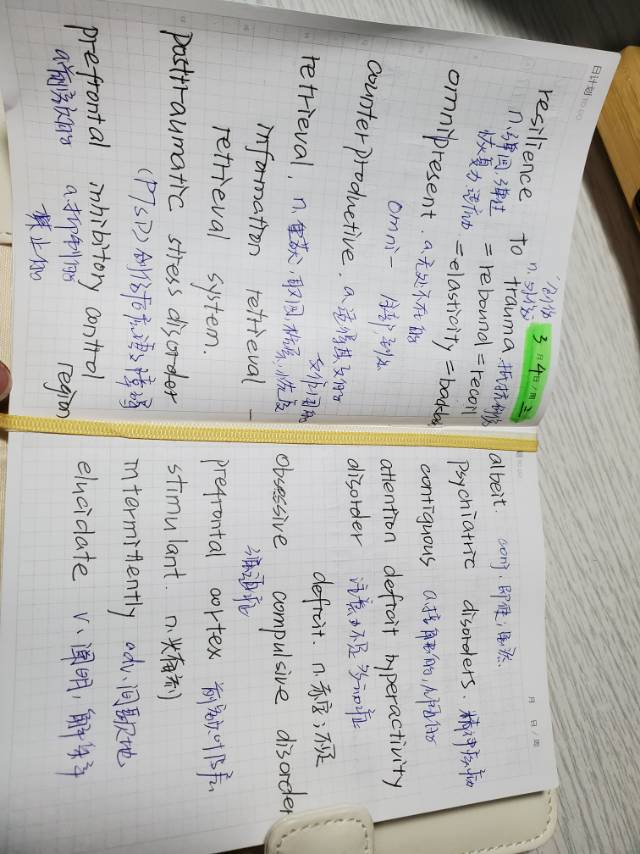 日计划 TO DO
3月4日/周三
创伤
resilience to trauma 抵抗创伤
n.弹回,弹过 n.创伤
恢复力 适应 = rebound = recoil
= elasticity = back
omnipresent. a.无处不在的
omni-
counterproductive. a.适得其反的
retrieval. n.重获,取回,检索,恢复
information retrieval
retrieval system.
posttraumatic stress disorder
(PTSD) 创伤后应激障碍
prefrontal inhibitory control region
a.前额叶的 a.抑制的
禁止的
月 日/周
albeit. conj.即使;虽然.
psychiatric disorders. 精神疾病
contiguous a.接壤的,
attention deficit hyperactivity
disorder 注意力不足多动症
deficit. n.赤字;不足
obsessive compulsive disorder
强迫症
prefrontal cortex 前额叶皮层
stimulant. n.兴奋剂
intermittently adv.间歇地
elucidate v.阐明,解释